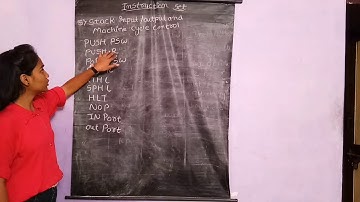 Instruction Set
5) Stack Input/output and
Machine Cycle control
PUSH PSW
PUSH
PSW
SPHL
HLT
NOP
IN Port
out Port